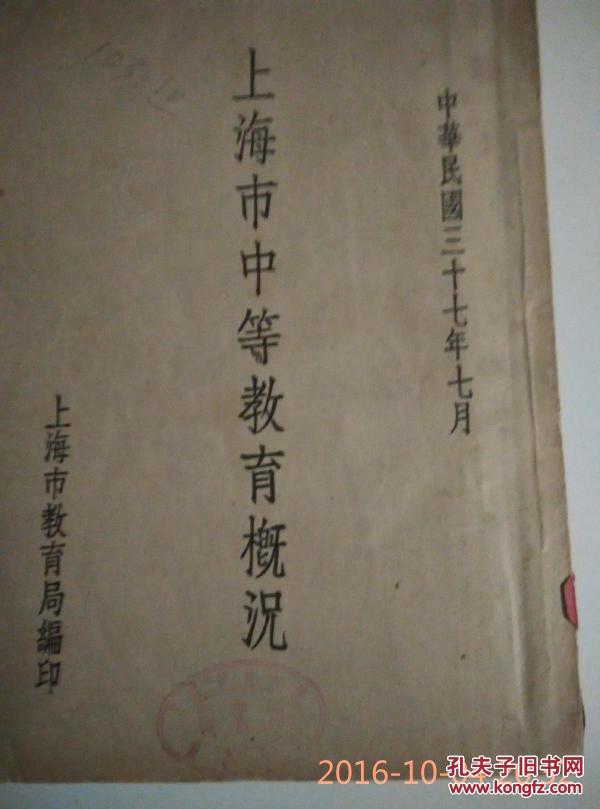 中華民國三十七年七月
上海市中等教育概況
上海市教育局編印
孔夫子旧书网
www.kongfz.com